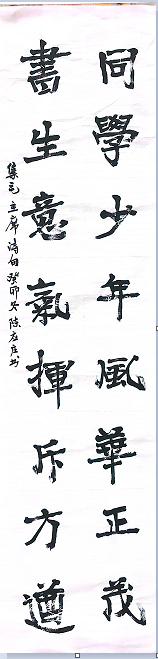 同學少年風華正茂
書生意氣揮斥方遒
集毛主席诗句癸卯冬陈书